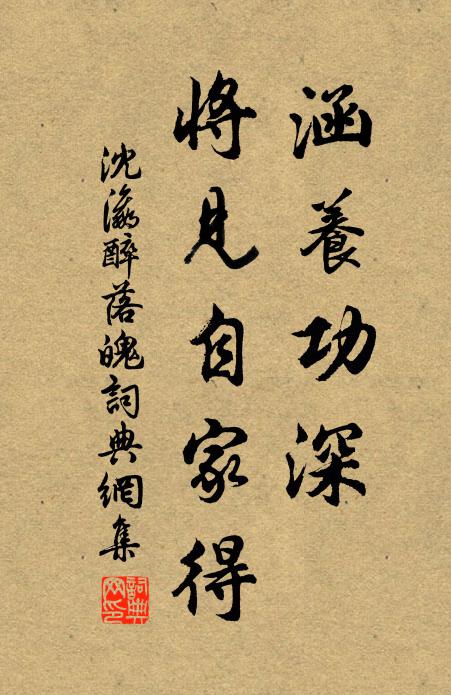 涵養功深
將見自家得
沈瀛醉落魄詞典網集
詞典網印